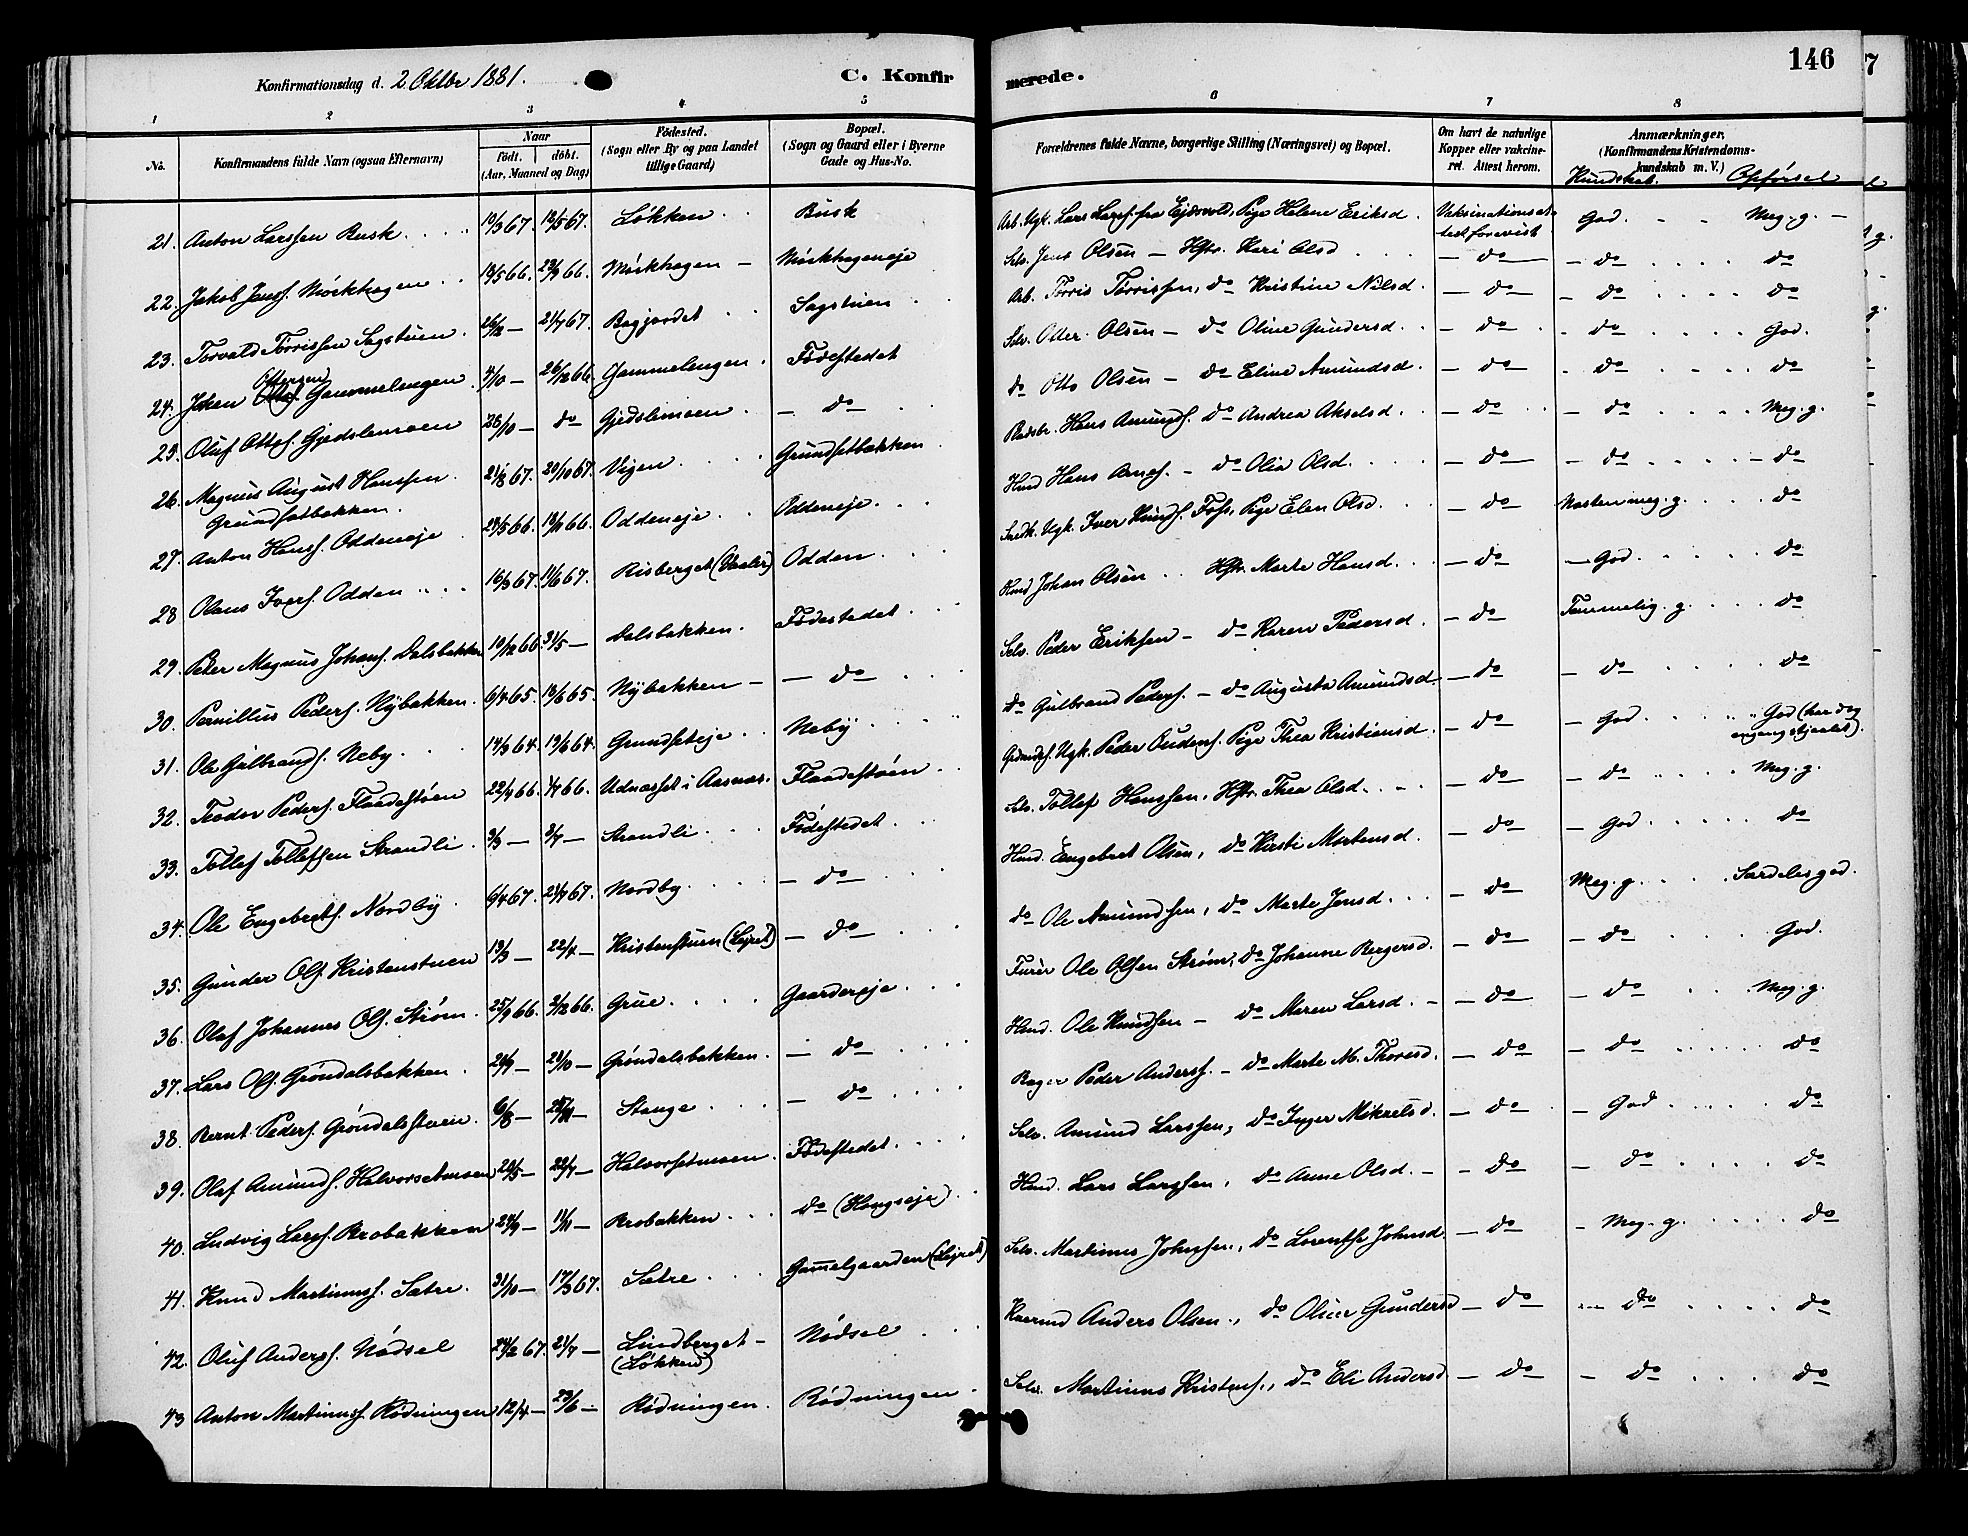 146
Konfirmationsdag d. 2 Oktbr 1881.
C. Konfirmerede.
1 2 3 4 5 6 7 8
No. Konfirmandens fulde Navn (ogsaa Efternavn) Naar født. døbt. (Aar, Maaned og Dag) Fødested. (Sogn eller By og paa Landet tillige Gaard) Bopæl. (Sogn og Gaard eller i Byerne Gade og Hus-No. Forældrenes fulde Navne, borgerlige Stilling (Næringsvei) og Bopæl. Om havt de naturlige Kopper eller vakcineret. Attest herom. Anmærkninger. (Konfirmandens Kristendomskundskab m. V.) Kundskab. Opførsel
21. Anton Larssen Busk 10/3 67. 12/5 67. Løkken Busk Arb. Ugk. Lars Larss. fra Ejdsvold, Pige Helene Eriksd. Vaksinationsattest forevist God. Meg. g.
22. Jakob Jenss. Mørkhagen 13/5 66. 23/9 66. Mørkhagen Mørkhageneje Selv. Jens Olsen – Hstr. Kari Olsd do do do
23. Torvald Tørrissen Sagstuen 26/12 – 21/7 67. Bagjordet Sagstuen Arb. Tørris Tørrissen, do Kristine Nilsd. do do do
24. Johan Ottersen Gammelengen 4/10 – 26/12 66. Gammelengen Fødestedet Selv. Otter Olsen – do Oline Gundersd. do do God.
25. Oluf Ottos. Gjedslemoen 28/10 – do Gjedslemoen do do Otto Olsen – do Eline Amundsd. do do do
26. Magnus August Hanssen Grundsetbakken. 21/8 67. 20/10 67. Vigen Grundsetbakken Pladsbr. Hans Amunds. do Andrea Akselsd. do do Meg. g.
27. Anton Hanss. Oddeneje 23/5 66. 18/11 66. Oddeneje Oddeneje Husmd Hans Arnes. – do Olia Olsd. do do do
28 Olaus Ivers. Odden 16/3 67. 11/6 67. Risberget (Vaaler) Odden Ugk. Iver Knuds. Foss, Pige Elen Olsd do Næsten meg. g. do
29. Peter Magnus Johans. Dalsbakken 10/12 66. 31/5 – Dalsbakken. Fødestedet Husmd Johan Olsen Hstr. Marte Hansd. do God do
30. Pernillus Peders. Nybakken. 6/4 65. 18/6 65. Nybakken do Selv. Peder Eriksen – do Karen Pedersd. do Temmelig. g. do
31. Ole Gulbrands. Neby 14/3 64. 19/6 64. Grundseteje Neby do Gulbrand Peders. – do Augusta Amundsd do do do
32. Teodor Peders. Flaadestøen 22/4 66. Udnesset i Aasnæs. Flaadestøen Ugk. Peder Oudens. Pige Thea Kristiansd. do God God (har dog engang stjaalet).
33. Tollef Tollefsen Strandli 3/3 – 3/7 – Strandli Fødestedet Selv. Tollef Hanssen, Hstr. Thea Olsd do do Meg. g.
34. Ole Engebrets. Nordby 6/4 67. 21/7 67. Nordby do Husmd. Engebret Olsen, do Kirsti Mortensd. do God do
35. Gunder Ols. Kristenstuen 13/3 – 22/4 – Kristenstuen (Lejret) do do Ole Amundsen, do Marte Jensd. do Meg. g. Særdeles god.
36. Olaf Johannes Ols. Strøm 25/9 66. 2/12 66. Grue Gaardereje Furér Ole Olsen Strøm, do Johanne Bergersd. do do God.
37. Lars Ols. Grøndalsbakken 24/9 – 28/10 – Grøndalsbakken. do Husmd. Ole Knudsen – do Maren Larsd. do do Meg. g.
38. Bernt Peders. Grøndalsstuen 6/8 – Stange do Bager Peder Anderss. – do Marte M. Thoresd. do do do
39. Olaf Amunds. Halvorsetmoen 20/5 – 22/7 – Halvorsetmoen Fødestedet Selv. Amund Larssen, do Inger Mikkelsd. do God do
40. Ludvig Larss. Brobakken 24/9 – 11/11 – Brobakken do (Haugseje) Husmd. Lars Larssen, do Anne Olsd. do do do
41. Knud Martinuss. Sætre. 31/10 – 17/3 67. Sætre Gammelgaarden (Lejret) Selv. Martinus Johnssen, do Lorentse Johnsd do Meg. g. do
42. Oluf Anderss. Nødsel 24/2 67. 21/7 – Lindberget (Løkken) Nødsel Kværnd Anders Olsen, do Oline Gundersd do do do
43 Anton Martinuss. Rødningen 12/4 – 23/6 – Rødningen. Rødningen Selv. Martinus Kristens., do Eli Andersd do do do